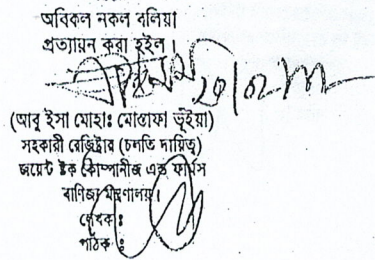 অবিকল নকল বলিয়া
প্রত্যায়ন করা হইল।
(আবু ইসা মোহাঃ মোস্তাফা ভূঁইয়া)
সহকারী রেজিষ্ট্রার (চলতি দায়িত্ব)
জয়েন্ট ষ্টক কোম্পানীজ এন্ড ফার্মস
বাণিজ্য মন্ত্রণালয়।
লেখক ঃ
পাঠক ঃ